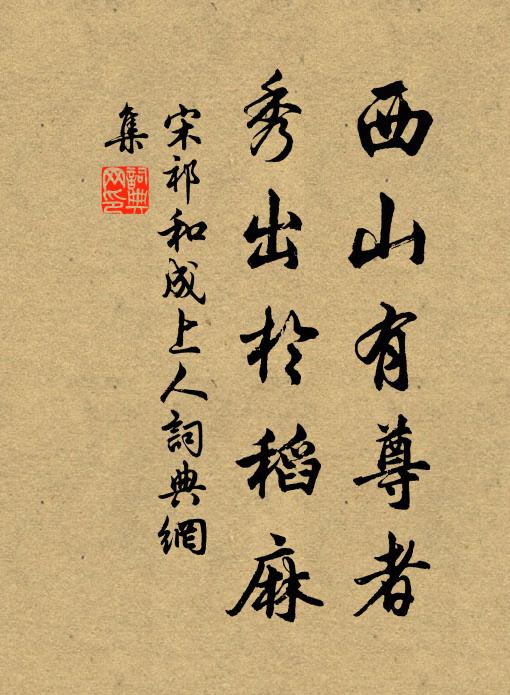 西山有尊者
秀出於稻麻
宋祁和成上人詞典網
集
詞典網印